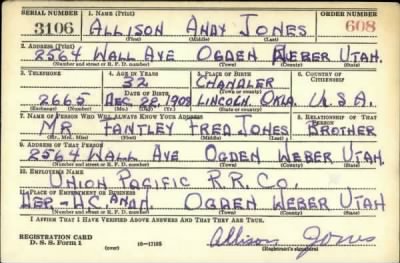 SERIAL NUMBER 1. NAME (Print) ORDER NUMBER
3106 ALLISON ANDY JONES 608
(First) (Middle) (Last)
2. ADDRESS (Print)
2564 WALL AVE OGDEN WEBER UTAH.
(Number and street or R. F. D. number) (Town) (County) (State)
3. TELEPHONE 4. AGE IN YEARS 5. PLACE OF BIRTH 6. COUNTRY OF CITIZENSHIP
32 CHANDLER
DATE OF BIRTH (Town or county)
2665 DEC 22, 1908 LINCOLN, OKLA. U.S.A.
(Exchange) (Number) (Mo.) (Day) (Yr.) (State or country)
7. NAME OF PERSON WHO WILL ALWAYS KNOW YOUR ADDRESS 8. RELATIONSHIP OF THAT PERSON
MR FANTLEY FRED JONES BROTHER
(Mr., Mrs., Miss) (First) (Middle) (Last)
9. ADDRESS OF THAT PERSON
2564 WALL AVE OGDEN WEBER UTAH.
(Number and street or R. F. D. number) (Town) (County) (State)
10. EMPLOYER'S NAME
UNION PACIFIC R.R. Co.
11. PLACE OF EMPLOYMENT OR BUSINESS
OGDEN WEBER UTAH
(Number and street or R. F. D. number) (Town) (County) (State)
I AFFIRM THAT I HAVE VERIFIED ABOVE ANSWERS AND THAT THEY ARE TRUE.
REGISTRATION CARD
D. S. S. Form 1 16—17105 Allison Jones
(Registrant's signature)